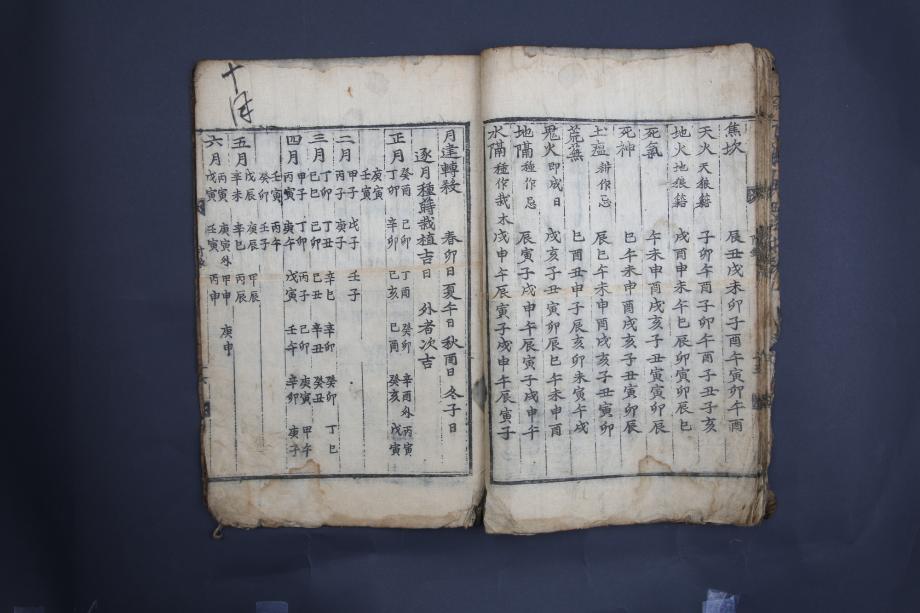 焦坎 辰丑戌未卯子酉午寅卯午酉
天火 天狼籍 子卯午酉子卯午酉子丑子亥
地火 地狼籍 戌酉申未午巳辰卯寅卯辰巳
死氣 午未申酉戌亥子丑寅寅卯辰
死神 巳午未申酉戌亥子丑寅卯辰
土瘟 耕作忌 辰巳午未申酉戌亥子丑寅卯
荒蕪 巳酉丑申子辰亥卯未寅午戌
鬼火 即成日 戌亥子丑寅卯辰巳午未申酉
地隔 種作忌 辰寅子戌申午辰寅子戌申午
水隔 種作栽木 戌申午辰寅子戌申午辰寅子
月建轉殺 春卯日夏午日秋酉日冬子日
逐月種蒔栽植吉日 外者次吉
正月 癸酉 己卯 丁酉 癸卯 辛酉 外 丙寅
丁卯 辛卯 己亥 己酉 癸亥 戊寅
庚寅
壬寅 戊子 壬子
二月 丙子 庚子
三月 丁丑 丁卯 辛巳 辛卯 癸卯 丁巳
己巳 己卯 己丑 辛丑 癸丑
四月 甲子 丁卯 丙子 己卯 庚寅 甲午
丙寅 庚午 戊寅 壬午 辛卯 庚子
壬寅 丙午
癸卯 壬子
五月 戊辰 庚辰 甲辰
辛未 辛巳 丙辰
丙寅 庚寅 外 甲申 庚申
六月 戊寅 壬寅 丙申